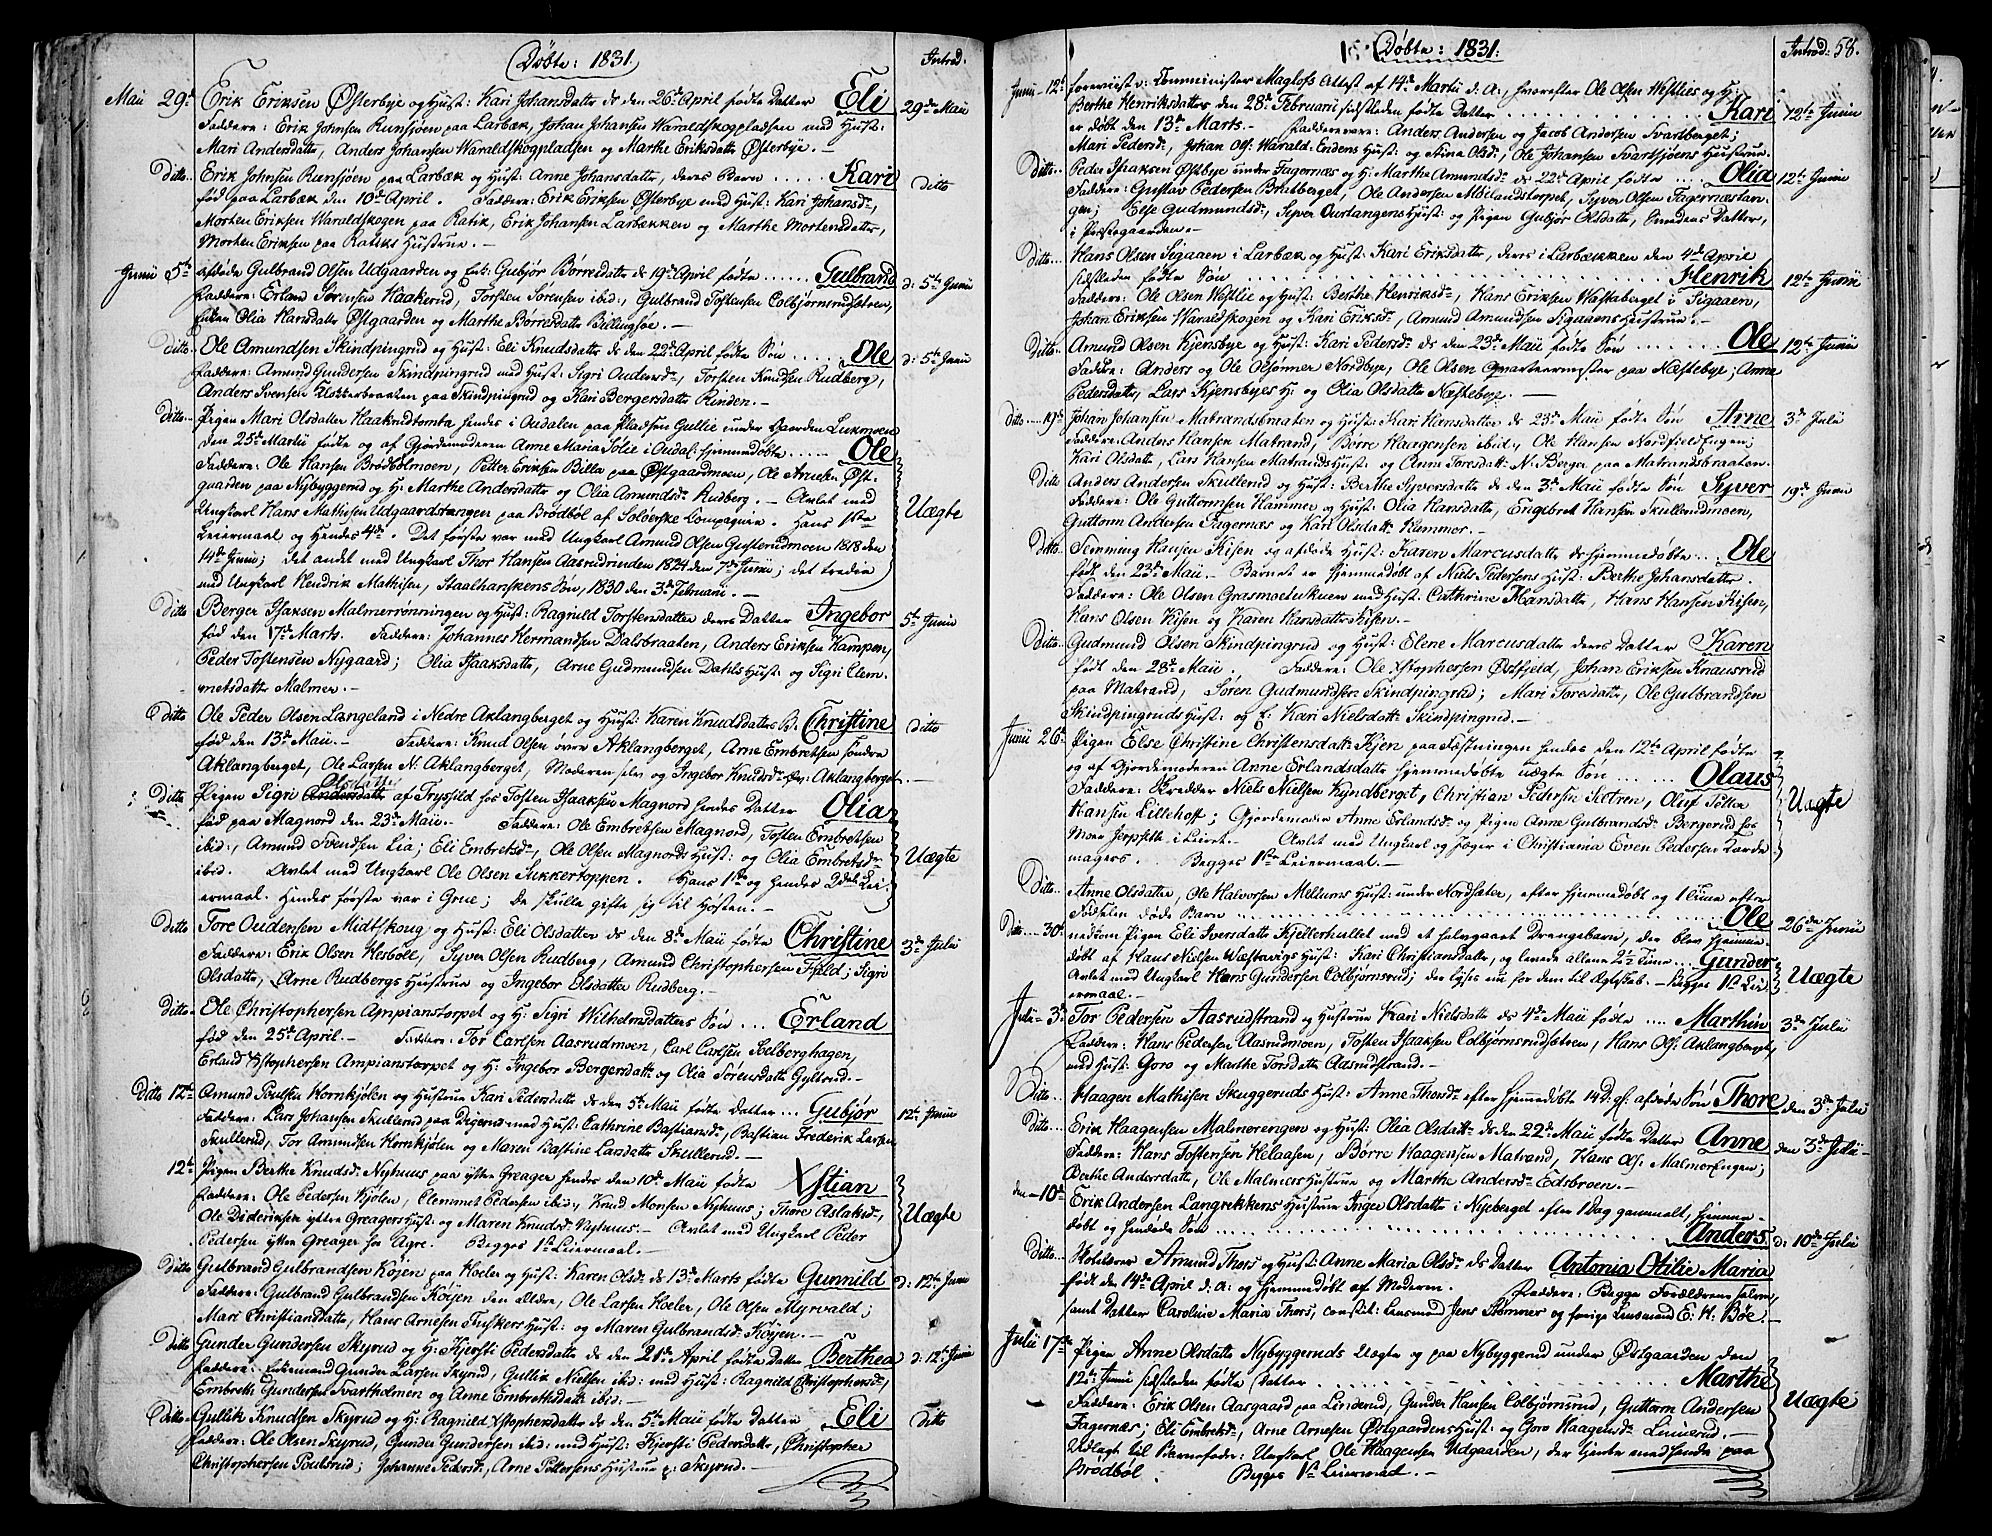 Döbte: 1831.
Introd:
Maii 29de Erik Eriksen Østerbye og Hust: Kari Johansdatts de 26de April födte Datter Eli 29de Maii
Faddere: Erik Johnsen Runsjöen paa Larbæk, Johan Johansen Waraldskogpladsen med Hust:
Mari Andersdatts, Anders Johansen Waraldskogpladsen og Marthe Eriksdatts Østerbye. —
Ditto Erik Johnsen Runsjöen paa Larbæk og Hust: Anne Johansdatts, deres Barn ..... Kari ditto
föd paa Larbæk den 10de April. Faddere: Erik Eriksen Østerbye med Hust: Kari Johansd:,
Morten Eriksen Waraldskogen paa Ratik, Erik Johansen Larbækken og Marthe Mortensdatts,
Morten Eriksen paa Ratiks Hustrue. —
Junii 5te afdöde Gulbrand Olsen Udgaarden og Enk: Gubjör Börresdatts de 19de April födte ..... Gulbrand d: 5te Junii
Faddere: Erland Sörensen Haakerud, Torsten Sörensen ibid:, Gulbrand Tostensen Colbjörnsrudsetren,
Enken Olia Hansdatts Østgaarden og Marthe Börresdatts Billingsöe. —
Ditto Ole Amundsen Skindpingrud og Hust: Eli Knudsdatts de 22de April födte Sön ...... Ole d: 5te Junii
Faddere: Amund Gundersen Skindpingrud med Hust: Sigri Oudensd:, Torsten Knudsen Rudberg,
Anders Svensen Klokkerbraaten paa Skindpingrud og Kari Bergersdatts Runden. —
Ditto Pigen Mari Olsdatter Haakrudtomta hendes i Oudalen paa Pladsen Gullie under Gaarden Lukmoen
den 25de Martii födte og af Gjordemoderen Anne Maria Solie i Oudal: hjemmedöbte ..... Ole
Faddere: Ole Hansen Brödbölmoen, Petter Eriksen Billa paa Østgaardmoen, Ole Arnesen Øst-
gaarden paa Nybyggerud og H: Marthe Andersdatts og Olia Amundsd: Rudberg. — Avlet med
Ungkarl Hans Mathisen Udgaardstangen paa Brödböl af Solörske Compagnie. Hans 1ste
Leiermaal og Hendes 4de. Det förste var med Ungkarl Amund Olsen Gusterudmoen 1818 den
14de Junii; det andet med Ungkarl Thor Hansen Aasrudrunden 1824 den 7de Junii; det tredie
med Ungkarl Hendrik Mathisen, Staalhanskens Sön, 1830 den 3de Februarii. —
Uægte
Ditto Berger Isaksen Malmerrönningen og Hust: Ragnild Torstensdatter deres Datter Ingebor 5te Junii
föd den 17de Marts. Faddere: Johannes Hermandsen Dalsbraaten, Anders Eriksen Kampen,
Peder Tostensen Nygaard; Olia Isaksdatts, Arne Gudmundsen Dahls Hust: og Sigri Clem-
metsdatts Malmer. —
Ditto Ole Peder Olsen Langeland i Nedre Aklangberget og Hust: Karen Knudsdatts B: Christine ditto
föd den 13de Maii. — Faddere: Knud Olsen övre Aklangberget, Arne Embretsen söndre
Aklangberget, Ole Larsen N: Aklangberget, Moderen selv og Ingebor Knudsd: Öv: Aklangberget. —
Ditto Pigen Sigri Olsdatter af Trysfild hos Tosten Isaksen Magnord hendes Datter Olia
föd paa Magnord den 23de Maii. Faddere: Ole Embretsen Magnord, Tosten Embretsen
ibid:, Amund Svendsen Lia; Eli Embretsd:, Ole Olsen Magnords Hust: og Olia Embretsd:
ibid. Avlet med Ungkarl Ole Olsen Sukkertoppen. Hans 1ste og hendes 2det Lei-
ermaal. Hendes förste var i Grue; De skulle gifte sig til Hösten. —
Uægte
Ditto Tore Oudensen Midtskoug og Hust: Eli Olsdatter de 8de Maii födte Christine 3de Julii
Faddere: Erik Olsen Hesböll, Syver Olsen Rudberg, Amund Christophersen Fjeld; Sigri
Olsdatts, Arne Rudbergs Hustrue og Ingebor Olsdatts Rudberg. —
Ditto Ole Christophersen Ampianstorpet og H: Sigri Wilhelmsdatters Sön .... Erland
föd den 25de April. — Faddere: Tor Carlsen Aasrudmoen, Carl Carlsen Soelberghagen,
Erland Xstophersen Ampianstorpet og H: Ingebor Bergersdatts og Olia Sörensdatts Gyltrud. —
Ditto 12te Amund Poulsen Hornkjölen og Hustrue Kari Pedersdatts de den 5te Maii födte Datter ... Gubjör 12te Junii
Faddere: Lars Johansen Skullerud paa Digerud med Hust: Cathrine Bastiansd:, Bastian Frederik Larsen
Skullerud, Tor Amundsen Hornkjölen og Maren Bastine Larsdatts Skullerud. —
12te Pigen Berthe Knudsd: Nyhuus paa yttre Greager hendes den 10de Maii födte Xstian
Faddere: Ole Pedersen Kjölen, Clemmet Pedersen ibid:, Knud Monsen Nyhuus; Thore Aslaksd:,
Ole Dideriksen yttre Greagers Hust: og Maren Knudsd: Nyhuus. — Avlet med Ungkarl Peder
Pedersen yttre Greager hos Agre. Begges 1ste Leiermaal. —
Uægte
Ditto Gulbrand Gulbrandsen Köjen paa Hoeler og Hust: Karen Olsd: de 13de Marts födte Gunnild d: 12te Junii
Faddere: Gulbrand Gulbrandsen Köjen den ældre, Ole Larsen Hoeler, Ole Olsen Myrvald;
Mari Christiansdatts, Hans Arnesen Fiskers Hust: og Maren Gulbrandsd: Köyen. —
Ditto Gunder Gundersen Skyrud og H: Kjersti Pedersdatts de den 21de April födte Datter Berthea d: 12te Junii
Faddere: Enkemand Gunder Larsen Skyrud, Gullik Nielsen ibid: med Hust: Ragnild Christophersd:,
Embrett Gundersen Svartholmen og Anne Embretsdatts ibid: —
Ditto Gullik Knudsen Skyrud og H: Ragnild Xstophersdatts de den 5te Maii födte Datter Eli Ditto
Faddere: Ole Olsen Skyrud, Gunder Gundersen ibid: med Hust: Kjersti Pedersdatts, Christopher
Christophersen Poulsrud; Johanne Pedersd:, Arne Pettersens Hustrue p: Skyrud. —
Döbte: 1831.
Introd: 58.
Junii 12te foreviist: Comminister Magelsens Attest af 14de Martii d. A:, hvorefter Ole Olsen Westlies og H:
Berthe Henriksdatts den 28de Februarii sidstleden födte Datter .............. Kari 12te Junii
er döbt den 13de Marts. — Faddere vare: Anders Andersen og Jacob Andersen Svartberget;
Mari Pedersd:, Johan Ols: Warald-Endens Hust: og Stina Olsd:, Ole Johansen Svartsjöens Hustrue.
Ditto Peder Isaksen Østbye under Fagernæs og H: Marthe Amundsd: de 22de April födte ... Olia 12te Junii
Faddere: Gustav Pedersen Brutberget, Ole Andersen Möllandstorpet, Syver Olsen Fagernæstan-
gen; Else Gudmundsd:, Syver Ourtangens Hust: og Pigen Gubjör Olsdatts, Smedens Datter,
i Præstegaarden. —
Ditto Hans Olsen Sigaaen i Larbæk og Hust: Kari Eriksdatts, deres i Larbækken den 4de April
sidstleden födte Sön .............. Henrik 12te Junii
Faddere: Ole Olsen Westlie og Hust: Berthe Henriksd:, Hans Eriksen Wastaberget i Sigaaen,
Johan Eriksen Waraldskogen og Kari Eriksd:, Amund Amundsen Sigaaens Hustrue. —
Ditto Amund Olsen Kjensbye og Hust: Kari Pedersd: de 23de Maii födte Sön ...... Ole 12te Junii
Faddere: Anders og Ole Olsönner Nordbye, Ole Olsen Quarteermester paa Næstebye; Anne
Pedersdatts, Lars Kjensbyes H: og Olia Olsdatts Næstebye. —
Ditto 19de Johan Johansen Matrandsbraaten og Hust: Kari Hansdatter de 23de Maii födte Sön Arne 3de Julii
Faddere: Anders Hansen Matrand, Börre Haagensen ibid:, Ole Hansen Nordfjeld Engen;
Kari Olsdatts, Lars Hansen Matrands Hust: og Anne Toresdatt: N: Berger paa Matrandsbraaten.
Ditto Anders Andersen Skullerud og Hust: Berthe Syversdatts de 3de Maii födte Sön Syver 19de Junii
Faddere: Ole Guttormsen Hammer og Hust: Olia Hansdatts, Engebret Hansen Skullerudmoen,
Guttorm Andersen Fagernæs og Kari Olsdatt: Hammer. —
Ditto Semming Hansen Kisen og afdöde Hust: Karen Marcusdatts de hjemmedöbte ... Ole
födt den 23de Maii. — Barnet er hjemmedöbt af Niels Pedersens Hust: Berthe Johansdatts.
Faddere: Ole Olsen Grasmoebekken med Hust: Cathrine Hansdatts, Hans Hansen Kisen,
Hans Olsen Kisen og Karen Hansdatts Kisen. —
Ditto Gudmund Olsen Skindpingrud og Hust: Elene Marcusdatts deres Datter Karen
födt den 28de Maii. Faddere: Ole Xstophersen Østfjeld, Johan Eriksen Knausrud
paa Matrand, Sören Gudmundsen Skindpingrud; Mari Toresdatts, Ole Gulbrandsen
Skindpingruds Hust: og P: Kari Nielsdatt: Skindpingrud. —
Junii 26de Pigen Else Christine Christensdatt: Kjen paa Fæstningen hendes den 12te April födte
og af Gjordemoderen Anne Erlandsdatts hjemmedöbte uægte Sön .... Olaus
Faddere: Skrædder Niels Nielsen Kyndberget, Christian Pedersen Setren, Oluf
Hansen Lillehoff; Gjordemoer Anne Erlandsd: og Pigen Anne Gulbrandsd: Bergerud hos
i Leiret. — Avlet med Ungkarl og Jæger i Christiania Even Pedersen
magers. Begges 1ste Leiermaal. —
Uægte
Ditto Anne Olsdatter, Ole Halvorsen Mellums Hust: under Nordsæter, efter hjemmedöbt og 1 Time efter
Födselen döde Barn .............. Ole 26de Junii
Ditto 30de nedkom Pigen Eli Iversdatts Kjellerhullet med et halvgaaet Drengebarn, der blev hjemme-
döbt af Hans Nielsen Wæstvigs Hust: Kari Christiansdatts, og levede allene 2½ Time ... Gunder
Avlet med Ungkarl Hans Gundersen Colbjörnsrud; der lyses nu for dem til Ægteskab. — Begges 1ste Lei-
ermaal. —
Uægte
Julii 3de Tor Pedersen Aasrudstrand og Hustrue Kari Nielsdatts de 4de Maii födte .... Marthin 3de Julii
Faddere: Hans Pedersen Aasrudmoen, Tosten Isaksen Colbjörnsrudsetren, Hans Ols: Aklangberget
med Hust: Goro og Marthe Torsdatts Aasrudstrand. —
Ditto Haagen Mathisen Skuggeruds Hust: Anne Thorsd: efter hjemmedöbte 14 D: gl: afdöde Sön Thore den 3de Julii
Ditto Erik Haagensen Malmerengen og Hust: Olia Olsdatt: de 22de Maii födte Datter Anne den 3de Julii
Faddere: Hans Tostensen Helaasen, Börre Haagensen Matrand, Hans Ols: MalmerEngen;
Berthe Andersdatts, Ole Malmers Hustrue og Marthe Andersd: Edsbroen. —
den 10de Erik Andersen Langrekkens Hustrue Inger Olsdatts i Nyeberget efter 1 Dag gammelt, hjemme-
döbt og hendöde Sön .............. Anders d: 10de Julii
Ditto Amund Thors og Hust: Anne Maria Olsd: de Datter Antonia Otilie Maria
födt den 14de April d. A: og hjemmedöbt af Moderen. Faddere: Begge Forældrene selv,
samt Datter Caroline Maria Thors, constit: Lensmand Jens Strömner og forige Lensmand E: H: Böe. —
Julii 17de Pigen Anne Olsdatts Nybyggeruds Uægte og paa Nybyggerud under Østgaarden den
12te Junii sidstleden födte Datter .............. Marthe
Faddere: Erik Olsen Aasgaard paa Linderud, Gunder Hansen Colbjörnsrud, Guttorm Andersen
Fagernæs; Eli Embretsd:, Arne Arnesen Østgaardens Hust: og Goro Haagensd: Linnerud. —
Udlagt til Barnefader: Ungkarl Ole Haagensen Udgaarden, der tiente med hende paa
Brödböl. Begges 1ste Leiermaal. —
Uægte